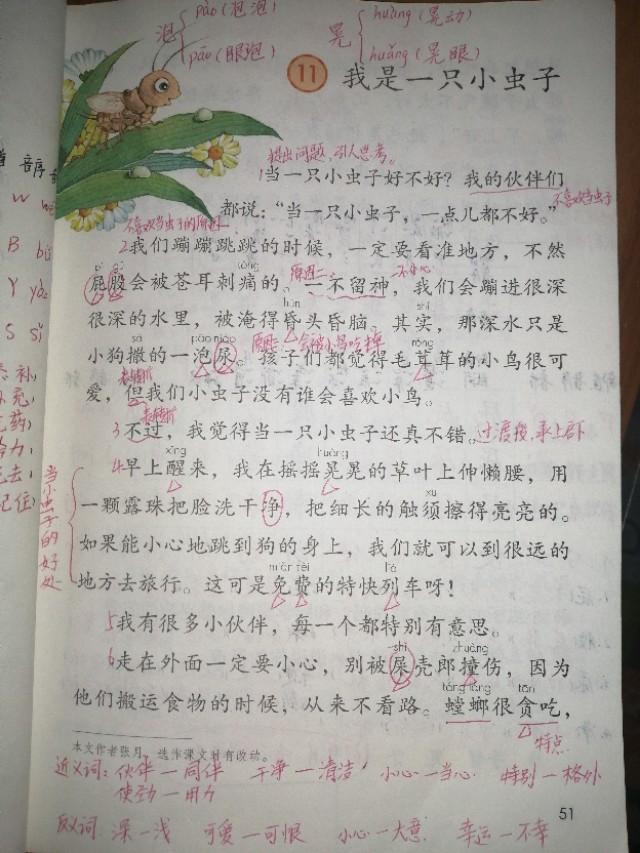 泡 pào(泡泡)
pāo(眼泡)
晃 huàng(晃动)
huǎng(晃眼)
11 我是一只小虫子
提出问题,引人思考。
1当一只小虫子好不好?我的伙伴们
不喜欢当虫子
都说:“当一只小虫子,一点儿都不好。”
不喜欢当虫子的原因
2我们蹦蹦跳跳的时候,一定要看准地方,不然
pì gu tòng 原因二 不小心
屁股会被苍耳刺痛的。一不留神,我们会蹦进很深
hūn shí
很深的水里,被淹得昏头昏脑。其实,那深水只是
sā pāo niào 会被小鸟吃掉 róng
小狗撒的一泡尿。孩子们都觉得毛茸茸的小鸟很可
爱,但我们小虫子没有谁会喜欢小鸟。
3不过,我觉得当一只小虫子还真不错。过渡段,承上启下
xǐng huàng
4早上醒来,我在摇摇晃晃的草叶上伸懒腰,用
xū
一颗露珠把脸洗干净,把细长的触须擦得亮亮的。
当小虫子的好处
如果能小心地跳到狗的身上,我们就可以到很远的
miǎn fèi liè
地方去旅行。这可是免费的特快列车呀!
5我有很多小伙伴,每一个都特别有意思。
shǐ zhuàng
6走在外面一定要小心,别被屎壳郎撞伤,因为
táng láng tān
他们搬运食物的时候,从来不看路。螳螂很贪吃,
特点
本文作者张月,选作课文时有改动。
近义词:伙伴—同伴 干净—清洁 小心—当心 特别—格外
使劲—用力
51
反义词 深—浅 可爱—可恨 小心—大意 幸运—不幸